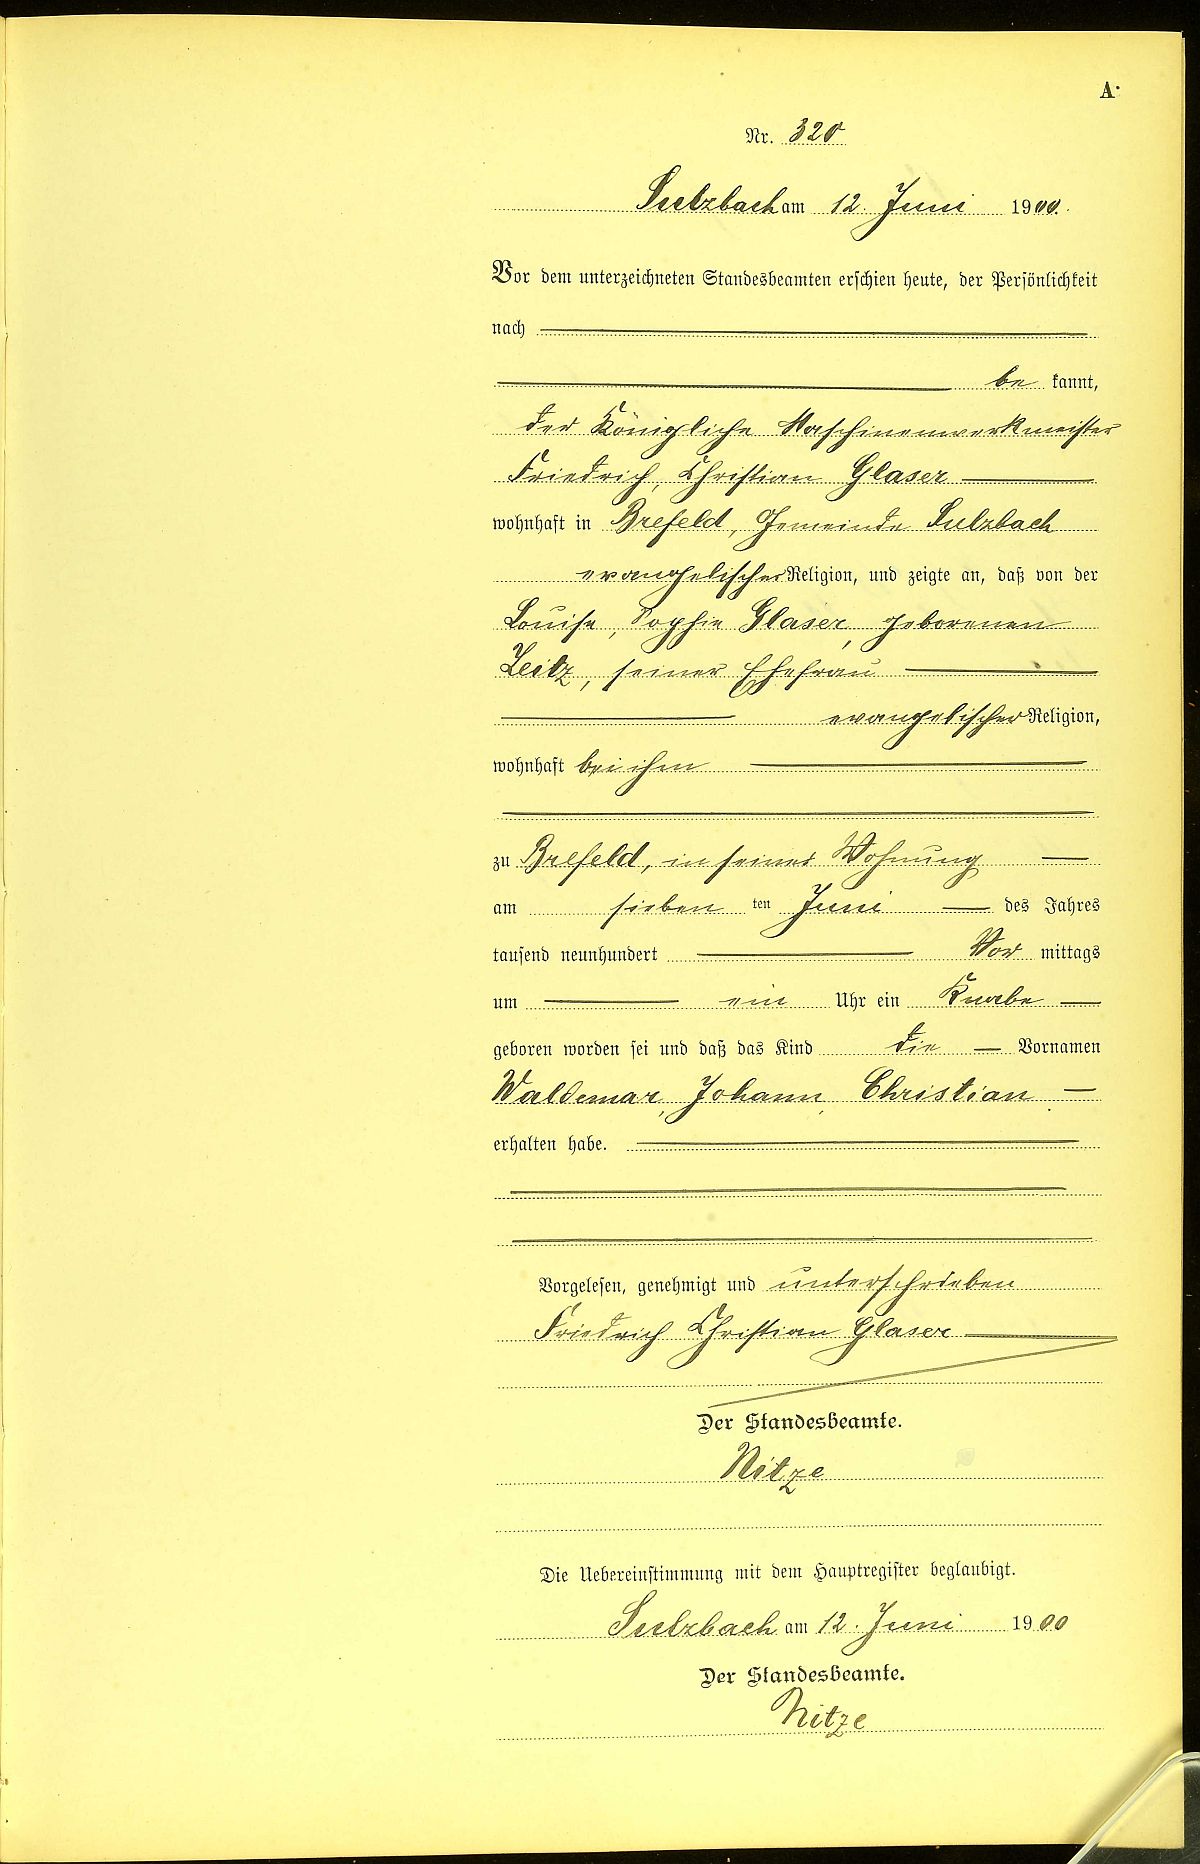 A.
Nr. 320
Sulzbach am 12. Juni 1900.
Vor dem unterzeichneten Standesbeamten erschien heute, der Persönlichkeit
nach
be kannt,
der Königliche Maschinenwerkmeister
Friedrich, Christian Glaser
wohnhaft in Brefeld, Gemeinde Sulzbach
evangelischer Religion, und zeigte an, daß von der
Louise, Sophie Glaser, geborenen
Zeitz, seiner Ehefrau
evangelischer Religion,
wohnhaft bei ihm
zu Brefeld, in seiner Wohnung
am sieben ten Juni des Jahres
tausend neunhundert Vor mittags
um ein Uhr ein Knabe
geboren worden sei und daß das Kind die Vornamen
Waldemar, Johann, Christian
erhalten habe.
Vorgelesen, genehmigt und unterschrieben
Friedrich Christian Glaser
Der Standesbeamte.
Nitze
Die Uebereinstimmung mit dem Hauptregister beglaubigt.
Sulzbach am 12. Juni 1900
Der Standesbeamte.
Nitze